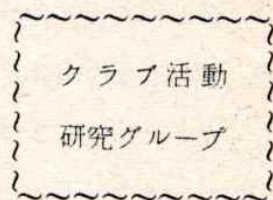 クラブ活動
研究グループ